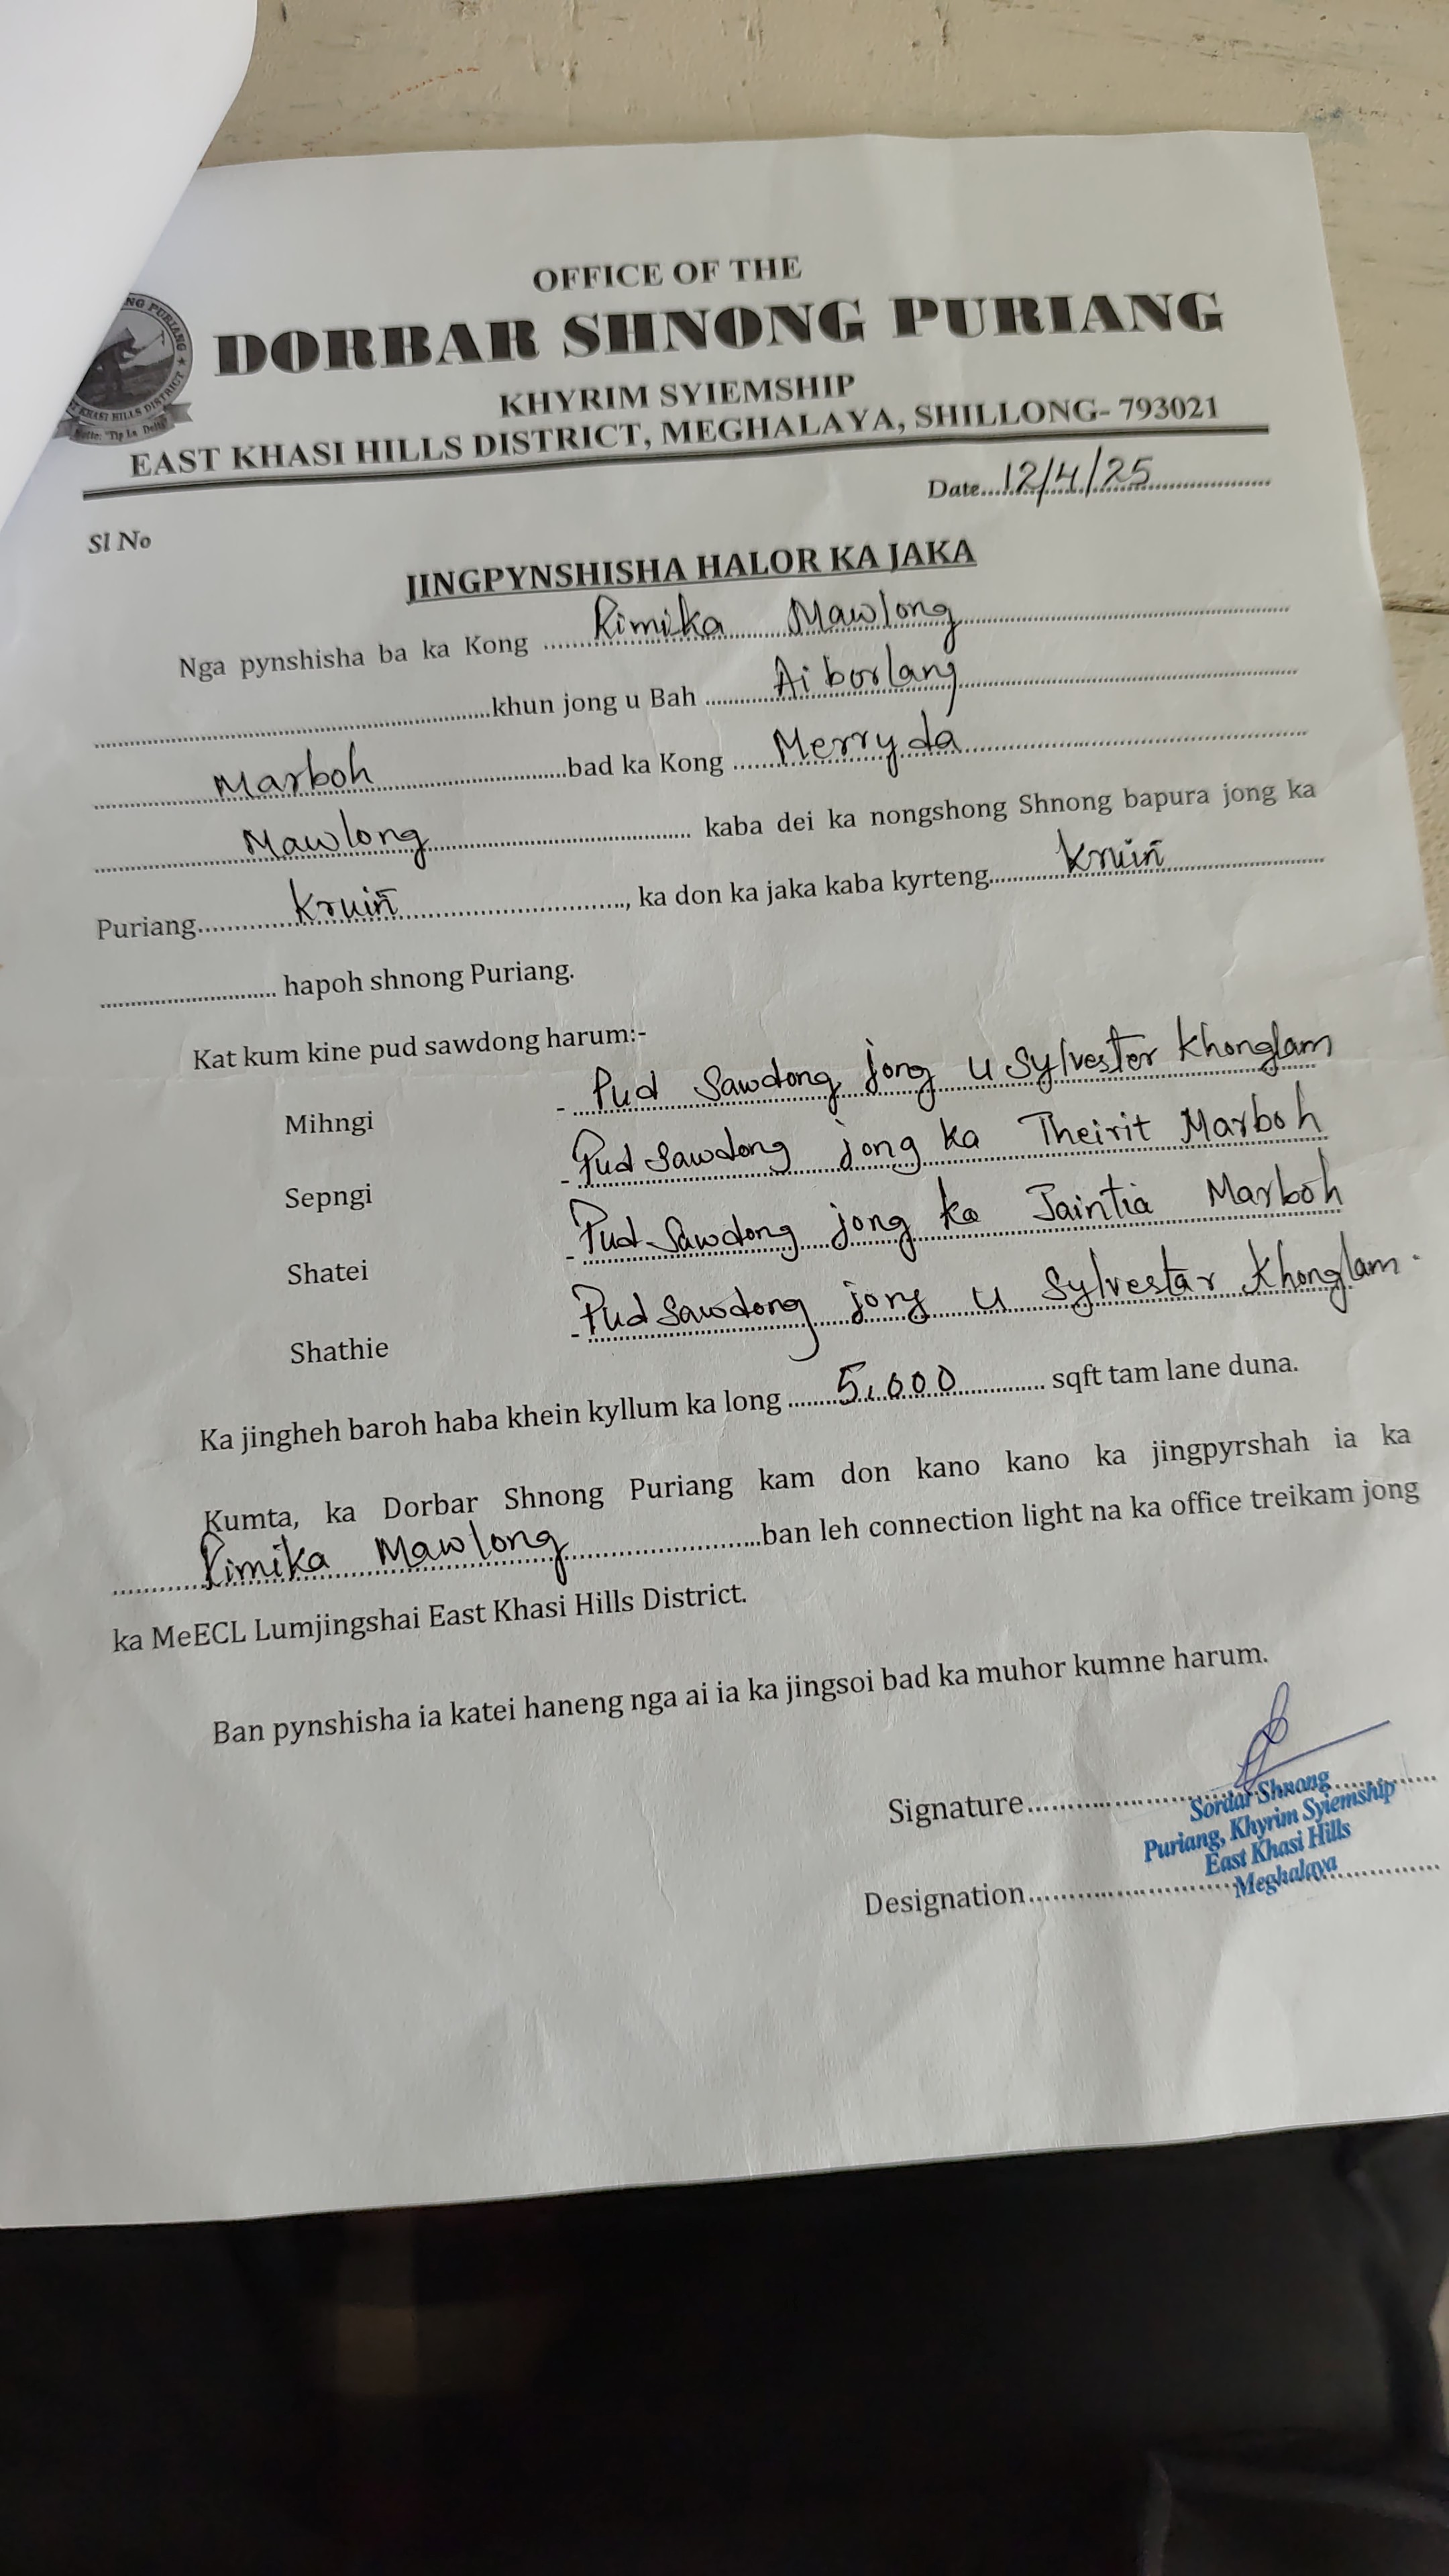 OFFICE OF THE
DORBAR SHNONG PURIANG
KHYRIM SYIEMSHIP
EAST KHASI HILLS DISTRICT, MEGHALAYA, SHILLONG- 793021
NG PURIANG ★
T KHASI HILLS DISTRICT
"Tip La Deiti"
Date...12/4/25...
Sl No
JINGPYNSHISHA HALOR KA JAKA
Nga pynshisha ba ka Kong ...Rimika Mawlong...
...khun jong u Bah ...Aiborlang...
...Marboh...bad ka Kong ...Merryda...
...Mawlong... kaba dei ka nongshong Shnong bapura jong ka
Puriang...Kruiñ..., ka don ka jaka kaba kyrteng...Kruiñ...
... hapoh shnong Puriang.
Kat kum kine pud sawdong harum:-
Mihngi - Pud Sawdong jong u Sylvester Khonglam
Sepngi - Pud Sawdong jong ka Theirit Marboh
Shatei - Pud Sawdong jong ka Jaintia Marboh
Shathie - Pud Sawdong jong u Sylvestar Khonglam.
Ka jingheh baroh haba khein kyllum ka long ...5,000... sqft tam lane duna.
Kumta, ka Dorbar Shnong Puriang kam don kano kano ka jingpyrshah ia ka
...Rimika Mawlong...ban leh connection light na ka office treikam jong
ka MeECL Lumjingshai East Khasi Hills District.
Ban pynshisha ia katei haneng nga ai ia ka jingsoi bad ka muhor kumne harum.
Signature...
Sordar Shnong
Puriang, Khyrim Syiemship
East Khasi Hills
Meghalaya
Designation...